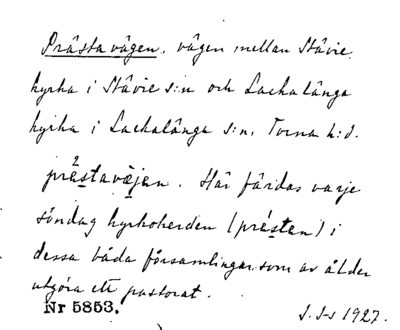 Prästavägen, vägen mellan Stävie
kyrka i Stävie s:n och Lackalänga
kyrka i Lackalänga s:n, Torna h:d.
prästavæjen. Här färdas varje
söndag kyrkoherden (prästen) i
dessa båda församlingar som av ålder
utgöra ett pastorat.
Nr 5853.
S. J-s 1927.